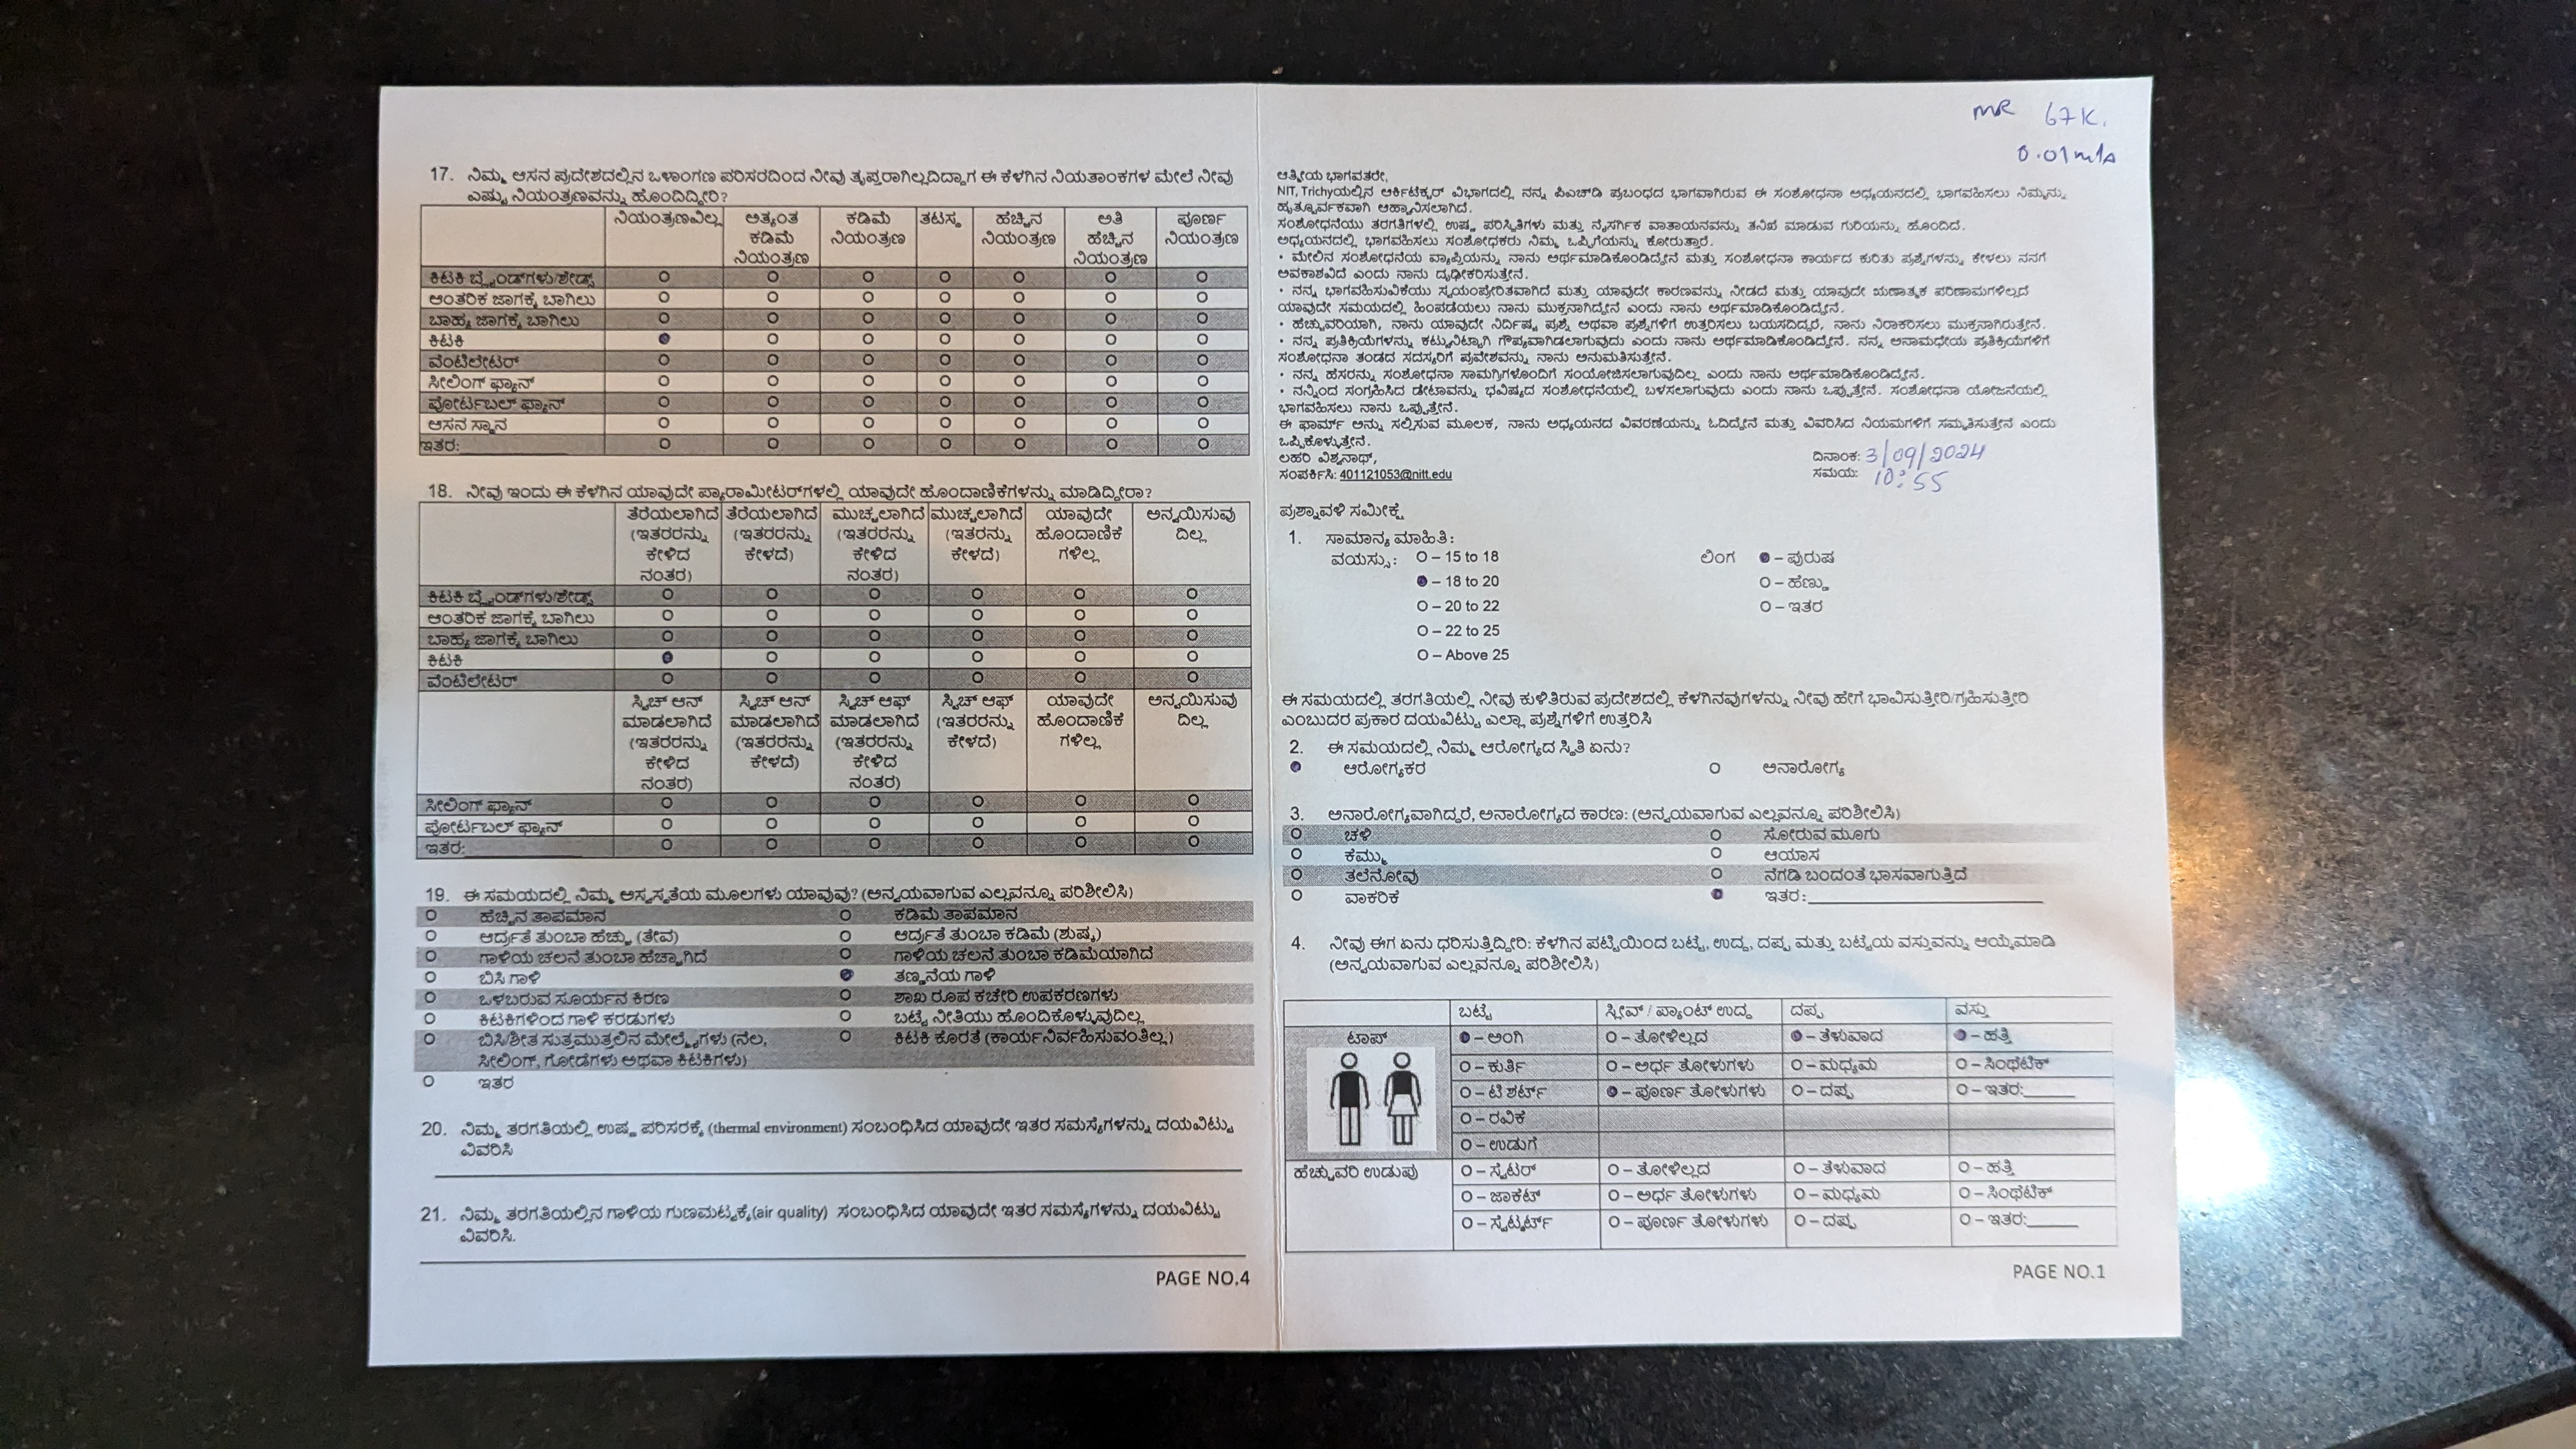 17. ನಿಮ್ಮ ಆಸನ ಪ್ರದೇಶದಲ್ಲಿನ ಒಳಾಂಗಣ ಪರಿಸರದಿಂದ ನೀವು ತೃಪ್ತರಾಗಿಲ್ಲದಿದ್ದಾಗ ಈ ಕೆಳಗಿನ ನಿಯತಾಂಕಗಳ ಮೇಲೆ ನೀವು
ಎಷ್ಟು ನಿಯಂತ್ರಣವನ್ನು ಹೊಂದಿದ್ದೀರಿ?
ನಿಯಂತ್ರಣವಿಲ್ಲ ಅತ್ಯಂತ ಕಡಿಮೆ ನಿಯಂತ್ರಣ ಕಡಿಮೆ ನಿಯಂತ್ರಣ ತಟಸ್ಥ ಹೆಚ್ಚಿನ ನಿಯಂತ್ರಣ ಅತಿ ಹೆಚ್ಚಿನ ನಿಯಂತ್ರಣ ಪೂರ್ಣ ನಿಯಂತ್ರಣ
ಕಿಟಕಿ ಬ್ಲೈಂಡ್‌ಗಳು/ಶೇಡ್ಸ್
ಆಂತರಿಕ ಜಾಗಕ್ಕೆ ಬಾಗಿಲು
ಬಾಹ್ಯ ಜಾಗಕ್ಕೆ ಬಾಗಿಲು
ಕಿಟಕಿ
ವೆಂಟಿಲೇಟರ್
ಸೀಲಿಂಗ್ ಫ್ಯಾನ್
ಪೋರ್ಟಬಲ್ ಫ್ಯಾನ್
ಆಸನ ಸ್ಥಾನ
ಇತರ:
18. ನೀವು ಇಂದು ಈ ಕೆಳಗಿನ ಯಾವುದೇ ಪ್ಯಾರಾಮೀಟರ್‌ಗಳಲ್ಲಿ ಯಾವುದೇ ಹೊಂದಾಣಿಕೆಗಳನ್ನು ಮಾಡಿದ್ದೀರಾ?
ತೆರೆಯಲಾಗಿದೆ (ಇತರರನ್ನು ಕೇಳಿದ ನಂತರ) ತೆರೆಯಲಾಗಿದೆ (ಇತರರನ್ನು ಕೇಳದೆ) ಮುಚ್ಚಲಾಗಿದೆ (ಇತರರನ್ನು ಕೇಳಿದ ನಂತರ) ಮುಚ್ಚಲಾಗಿದೆ (ಇತರರನ್ನು ಕೇಳದೆ) ಯಾವುದೇ ಹೊಂದಾಣಿಕೆ ಗಳಿಲ್ಲ ಅನ್ವಯಿಸುವು ದಿಲ್ಲ
ಕಿಟಕಿ ಬ್ಲೈಂಡ್‌ಗಳು/ಶೇಡ್ಸ್
ಆಂತರಿಕ ಜಾಗಕ್ಕೆ ಬಾಗಿಲು
ಬಾಹ್ಯ ಜಾಗಕ್ಕೆ ಬಾಗಿಲು
ಕಿಟಕಿ
ವೆಂಟಿಲೇಟರ್
ಸ್ವಿಚ್ ಆನ್ ಮಾಡಲಾಗಿದೆ (ಇತರರನ್ನು ಕೇಳಿದ ನಂತರ) ಸ್ವಿಚ್ ಆನ್ ಮಾಡಲಾಗಿದೆ (ಇತರರನ್ನು ಕೇಳದೆ) ಸ್ವಿಚ್ ಆಫ್ ಮಾಡಲಾಗಿದೆ (ಇತರರನ್ನು ಕೇಳಿದ ನಂತರ) ಸ್ವಿಚ್ ಆಫ್ (ಇತರರನ್ನು ಕೇಳದೆ) ಯಾವುದೇ ಹೊಂದಾಣಿಕೆ ಗಳಿಲ್ಲ ಅನ್ವಯಿಸುವು ದಿಲ್ಲ
ಸೀಲಿಂಗ್ ಫ್ಯಾನ್
ಪೋರ್ಟಬಲ್ ಫ್ಯಾನ್
ಇತರ:
19. ಈ ಸಮಯದಲ್ಲಿ ನಿಮ್ಮ ಅಸ್ವಸ್ಥತೆಯ ಮೂಲಗಳು ಯಾವುವು? (ಅನ್ವಯವಾಗುವ ಎಲ್ಲವನ್ನೂ ಪರಿಶೀಲಿಸಿ)
ಹೆಚ್ಚಿನ ತಾಪಮಾನ ಕಡಿಮೆ ತಾಪಮಾನ
ಆರ್ದ್ರತೆ ತುಂಬಾ ಹೆಚ್ಚು (ತೇವ) ಆರ್ದ್ರತೆ ತುಂಬಾ ಕಡಿಮೆ (ಶುಷ್ಕ)
ಗಾಳಿಯ ಚಲನೆ ತುಂಬಾ ಹೆಚ್ಚಾಗಿದೆ ಗಾಳಿಯ ಚಲನೆ ತುಂಬಾ ಕಡಿಮೆಯಾಗಿದೆ
ಬಿಸಿ ಗಾಳಿ ತಣ್ಣನೆಯ ಗಾಳಿ
ಒಳಬರುವ ಸೂರ್ಯನ ಕಿರಣ ಶಾಖ ರೂಪ ಕಚೇರಿ ಉಪಕರಣಗಳು
ಕಿಟಕಿಗಳಿಂದ ಗಾಳಿ ಕರಡುಗಳು ಬಟ್ಟೆ ನೀತಿಯು ಹೊಂದಿಕೊಳ್ಳುವುದಿಲ್ಲ
ಬಿಸಿ/ಶೀತ ಸುತ್ತಮುತ್ತಲಿನ ಮೇಲ್ಮೈಗಳು (ನೆಲ, ಕಿಟಕಿ ಕೊರತೆ (ಕಾರ್ಯನಿರ್ವಹಿಸುವಂತಿಲ್ಲ)
ಸೀಲಿಂಗ್, ಗೋಡೆಗಳು ಅಥವಾ ಕಿಟಕಿಗಳು)
ಇತರ
20. ನಿಮ್ಮ ತರಗತಿಯಲ್ಲಿ ಉಷ್ಣ ಪರಿಸರಕ್ಕೆ (thermal environment) ಸಂಬಂಧಿಸಿದ ಯಾವುದೇ ಇತರ ಸಮಸ್ಯೆಗಳನ್ನು ದಯವಿಟ್ಟು
ವಿವರಿಸಿ
21. ನಿಮ್ಮ ತರಗತಿಯಲ್ಲಿನ ಗಾಳಿಯ ಗುಣಮಟ್ಟಕ್ಕೆ(air quality) ಸಂಬಂಧಿಸಿದ ಯಾವುದೇ ಇತರ ಸಮಸ್ಯೆಗಳನ್ನು ದಯವಿಟ್ಟು
ವಿವರಿಸಿ.
PAGE NO.4
MR 67K.
0.01m/s
ಆತ್ಮೀಯ ಭಾಗವತರೇ,
NIT, Trichyಯಲ್ಲಿನ ಆರ್ಕಿಟೆಕ್ಚರ್ ವಿಭಾಗದಲ್ಲಿ ನನ್ನ ಪಿಎಚ್‌ಡಿ ಪ್ರಬಂಧದ ಭಾಗವಾಗಿರುವ ಈ ಸಂಶೋಧನಾ ಅಧ್ಯಯನದಲ್ಲಿ ಭಾಗವಹಿಸಲು ನಿಮ್ಮನ್ನು
ಹೃತ್ಪೂರ್ವಕವಾಗಿ ಆಹ್ವಾನಿಸಲಾಗಿದೆ.
ಸಂಶೋಧನೆಯು ತರಗತಿಗಳಲ್ಲಿ ಉಷ್ಣ ಪರಿಸ್ಥಿತಿಗಳು ಮತ್ತು ನೈಸರ್ಗಿಕ ವಾತಾಯನವನ್ನು ತನಿಖೆ ಮಾಡುವ ಗುರಿಯನ್ನು ಹೊಂದಿದೆ.
ಅಧ್ಯಯನದಲ್ಲಿ ಭಾಗವಹಿಸಲು ಸಂಶೋಧಕರು ನಿಮ್ಮ ಒಪ್ಪಿಗೆಯನ್ನು ಕೋರುತ್ತಾರೆ.
• ಮೇಲಿನ ಸಂಶೋಧನೆಯ ವ್ಯಾಪ್ತಿಯನ್ನು ನಾನು ಅರ್ಥಮಾಡಿಕೊಂಡಿದ್ದೇನೆ ಮತ್ತು ಸಂಶೋಧನಾ ಕಾರ್ಯದ ಕುರಿತು ಪ್ರಶ್ನೆಗಳನ್ನು ಕೇಳಲು ನನಗೆ
ಅವಕಾಶವಿದೆ ಎಂದು ನಾನು ದೃಢೀಕರಿಸುತ್ತೇನೆ.
• ನನ್ನ ಭಾಗವಹಿಸುವಿಕೆಯು ಸ್ವಯಂಪ್ರೇರಿತವಾಗಿದೆ ಮತ್ತು ಯಾವುದೇ ಕಾರಣವನ್ನು ನೀಡದೆ ಮತ್ತು ಯಾವುದೇ ಋಣಾತ್ಮಕ ಪರಿಣಾಮಗಳಿಲ್ಲದೆ
ಯಾವುದೇ ಸಮಯದಲ್ಲಿ ಹಿಂಪಡೆಯಲು ನಾನು ಮುಕ್ತನಾಗಿದ್ದೇನೆ ಎಂದು ನಾನು ಅರ್ಥಮಾಡಿಕೊಂಡಿದ್ದೇನೆ.
• ಹೆಚ್ಚುವರಿಯಾಗಿ, ನಾನು ಯಾವುದೇ ನಿರ್ದಿಷ್ಟ ಪ್ರಶ್ನೆ ಅಥವಾ ಪ್ರಶ್ನೆಗಳಿಗೆ ಉತ್ತರಿಸಲು ಬಯಸದಿದ್ದರೆ, ನಾನು ನಿರಾಕರಿಸಲು ಮುಕ್ತನಾಗಿರುತ್ತೇನೆ.
• ನನ್ನ ಪ್ರತಿಕ್ರಿಯೆಗಳನ್ನು ಕಟ್ಟುನಿಟ್ಟಾಗಿ ಗೌಪ್ಯವಾಗಿಡಲಾಗುವುದು ಎಂದು ನಾನು ಅರ್ಥಮಾಡಿಕೊಂಡಿದ್ದೇನೆ. ನನ್ನ ಅನಾಮಧೇಯ ಪ್ರತಿಕ್ರಿಯೆಗಳಿಗೆ
ಸಂಶೋಧನಾ ತಂಡದ ಸದಸ್ಯರಿಗೆ ಪ್ರವೇಶವನ್ನು ನಾನು ಅನುಮತಿಸುತ್ತೇನೆ.
• ನನ್ನ ಹೆಸರನ್ನು ಸಂಶೋಧನಾ ಸಾಮಗ್ರಿಗಳೊಂದಿಗೆ ಸಂಯೋಜಿಸಲಾಗುವುದಿಲ್ಲ ಎಂದು ನಾನು ಅರ್ಥಮಾಡಿಕೊಂಡಿದ್ದೇನೆ.
• ನನ್ನಿಂದ ಸಂಗ್ರಹಿಸಿದ ಡೇಟಾವನ್ನು ಭವಿಷ್ಯದ ಸಂಶೋಧನೆಯಲ್ಲಿ ಬಳಸಲಾಗುವುದು ಎಂದು ನಾನು ಒಪ್ಪುತ್ತೇನೆ. ಸಂಶೋಧನಾ ಯೋಜನೆಯಲ್ಲಿ
ಭಾಗವಹಿಸಲು ನಾನು ಒಪ್ಪುತ್ತೇನೆ.
ಈ ಫಾರ್ಮ್ ಅನ್ನು ಸಲ್ಲಿಸುವ ಮೂಲಕ, ನಾನು ಅಧ್ಯಯನದ ವಿವರಣೆಯನ್ನು ಓದಿದ್ದೇನೆ ಮತ್ತು ವಿವರಿಸಿದ ನಿಯಮಗಳಿಗೆ ಸಮ್ಮತಿಸುತ್ತೇನೆ ಎಂದು
ಒಪ್ಪಿಕೊಳ್ಳುತ್ತೇನೆ.
ಲಹರಿ ವಿಶ್ವನಾಥ್,
ಸಂಪರ್ಕಿಸಿ: 401121053@nitt.edu
ದಿನಾಂಕ: 3/09/2024
ಸಮಯ: 10:55
ಪ್ರಶ್ನಾವಳಿ ಸಮೀಕ್ಷೆ
1. ಸಾಮಾನ್ಯ ಮಾಹಿತಿ:
ವಯಸ್ಸು: O – 15 to 18 ಲಿಂಗ – ಪುರುಷ
– 18 to 20 O – ಹೆಣ್ಣು
O – 20 to 22 O – ಇತರ
O – 22 to 25
O – Above 25
ಈ ಸಮಯದಲ್ಲಿ ತರಗತಿಯಲ್ಲಿ ನೀವು ಕುಳಿತಿರುವ ಪ್ರದೇಶದಲ್ಲಿ ಕೆಳಗಿನವುಗಳನ್ನು ನೀವು ಹೇಗೆ ಭಾವಿಸುತ್ತೀರಿ/ಗ್ರಹಿಸುತ್ತೀರಿ
ಎಂಬುದರ ಪ್ರಕಾರ ದಯವಿಟ್ಟು ಎಲ್ಲಾ ಪ್ರಶ್ನೆಗಳಿಗೆ ಉತ್ತರಿಸಿ
2. ಈ ಸಮಯದಲ್ಲಿ ನಿಮ್ಮ ಆರೋಗ್ಯದ ಸ್ಥಿತಿ ಏನು?
ಆರೋಗ್ಯಕರ O ಅನಾರೋಗ್ಯ
3. ಅನಾರೋಗ್ಯವಾಗಿದ್ದರೆ, ಅನಾರೋಗ್ಯದ ಕಾರಣ: (ಅನ್ವಯವಾಗುವ ಎಲ್ಲವನ್ನೂ ಪರಿಶೀಲಿಸಿ)
ಚಳಿ ಸೋರುವ ಮೂಗು
ಕೆಮ್ಮು ಆಯಾಸ
ತಲೆನೋವು ನೆಗಡಿ ಬಂದಂತೆ ಭಾಸವಾಗುತ್ತಿದೆ
ವಾಕರಿಕೆ ಇತರ:
4. ನೀವು ಈಗ ಏನು ಧರಿಸುತ್ತಿದ್ದೀರಿ: ಕೆಳಗಿನ ಪಟ್ಟಿಯಿಂದ ಬಟ್ಟೆ, ಉದ್ದ, ದಪ್ಪ ಮತ್ತು ಬಟ್ಟೆಯ ವಸ್ತುವನ್ನು ಆಯ್ಕೆಮಾಡಿ
(ಅನ್ವಯವಾಗುವ ಎಲ್ಲವನ್ನೂ ಪರಿಶೀಲಿಸಿ)
ಬಟ್ಟೆ ಸ್ಲೀವ್ / ಪ್ಯಾಂಟ್ ಉದ್ದ ದಪ್ಪ ವಸ್ತು
ಟಾಪ್ – ಅಂಗಿ O – ತೋಳಿಲ್ಲದ – ತೆಳುವಾದ – ಹತ್ತಿ
O – ಕುರ್ತಿ O – ಅರ್ಧ ತೋಳುಗಳು O – ಮಧ್ಯಮ O – ಸಿಂಥೆಟಿಕ್
O – ಟಿ ಶರ್ಟ್ – ಪೂರ್ಣ ತೋಳುಗಳು O – ದಪ್ಪ O – ಇತರ:
O – ರವಿಕೆ
O – ಉಡುಗೆ
ಹೆಚ್ಚುವರಿ ಉಡುಪು O – ಸ್ವೆಟರ್ O – ತೋಳಿಲ್ಲದ O – ತೆಳುವಾದ O – ಹತ್ತಿ
O – ಜಾಕೆಟ್ O – ಅರ್ಧ ತೋಳುಗಳು O – ಮಧ್ಯಮ O – ಸಿಂಥೆಟಿಕ್
O – ಸ್ವೆಟ್ಶರ್ಟ್ O – ಪೂರ್ಣ ತೋಳುಗಳು O – ದಪ್ಪ O – ಇತರ:
PAGE NO.1